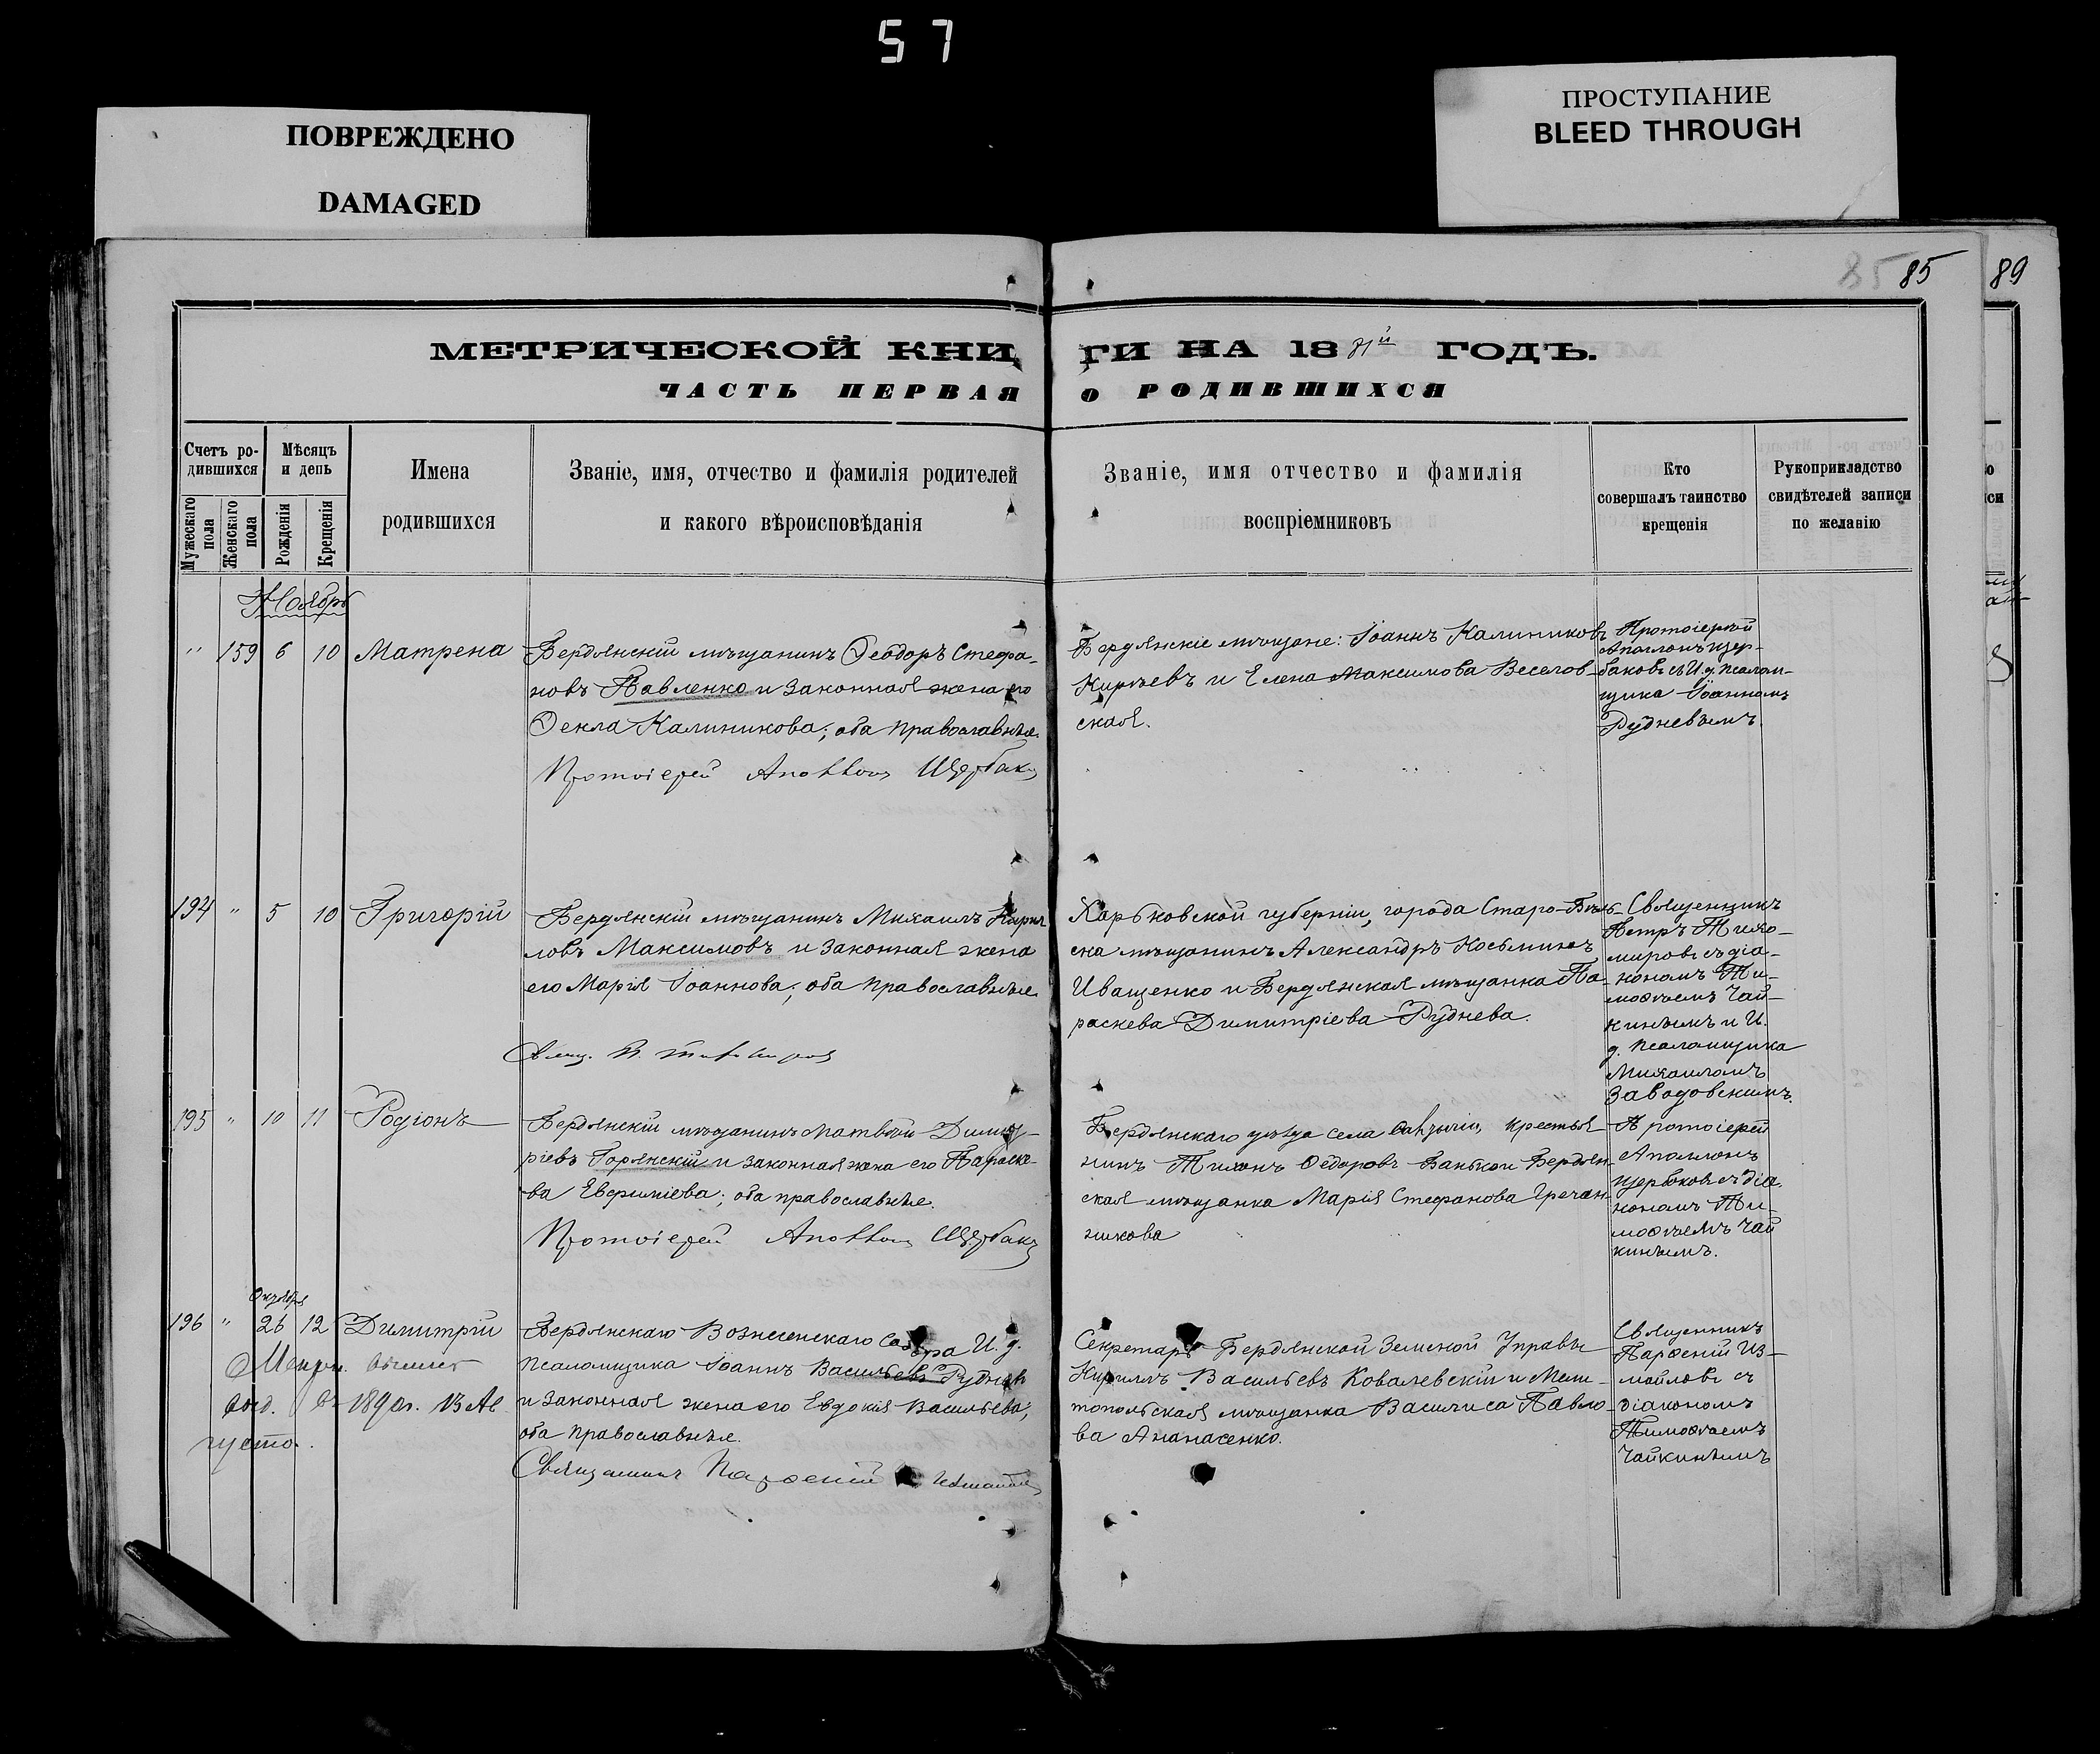 57
ПОВРЕЖДЕНО
DAMAGED
ПРОСТУПАНИЕ
BLEED THROUGH
85 85
89
МЕТРИЧЕСКОЙ КНИ ГИ НА 18 ГОДЪ.
ЧАСТЬ ПЕРВАЯ О РОДИВШИХСЯ
Счетъ ро-
дившихся
Мѣсяцъ
и день
Мужескаго
пола
Женскаго
пола
Рожденія
Крещенія
Имена
родившихся
Званіе, имя, отчество и фамилія родителей
и какого вѣроисповѣданія
Званіе, имя отчество и фамилія
воспріемниковъ
Кто
совершалъ таинство
крещенія
Рукоприкладство
свидѣтелей записи
по желанію
Ноябрь
" 159 6 10 Матрена
Бердянскій мѣщанинъ Ѳеодоръ Стефа-
новъ Павленко и законная жена его
Ѳекла Калиникова; оба православные.
Протоіерей Аполлонъ Щербаковъ
Бердянскіе мѣщане: Іоаннъ Калиниковъ
Кирѣевъ и Елена Максимова Веселов-
ская.
Протоіерей
Аполлонъ Щер-
баковъ съ И. д. псалом-
щика Іоанномъ
Рудневымъ.
194 " 5 10 Григорій
Бердянскій мѣщанинъ Михаилъ Кирил
ловъ Максимовъ и законная жена
его Марія Іоаннова; оба православные.
Свящ. П. Тихомировъ
Харьковской губерніи, города Старо-Бѣль-
ска мѣщанинъ Александръ Косьминъ
Иващенко и Бердянская мѣщанка Па-
раскева Димитріева Руднева.
Священникъ
Петръ Тихо-
мировъ съ діа-
кономъ Ти-
моѳеемъ Чай-
кинымъ и И.
д. псаломщика
Михаиломъ
Заводовскимъ.
195 " 10 11 Родіонъ
Бердянскій мѣщанинъ Матвѣй Димит-
ріевъ Горянскій и законная жена его Параске-
ва Евфиміева; оба православные.
Протоіерей Аполлонъ Щербаковъ
Бердянскаго уѣзда села крестья-
нинъ Тихонъ Ѳедоровъ и Бердян-
ская мѣщанка Марія Стефанова Гречан-
никова
Протоіерей
Аполлонъ
Щербаковъ съ діа
кономъ Ти-
моѳеемъ Чай
кинымъ.
Октября
196 " 26 12 Димитрій
Метри. выпись
выд. въ 1890г. 13 Ав
густа.
Бердянскаго Вознесенскаго Собора И. д.
псаломщика Іоаннъ Васильевъ Рудневъ
и законная жена его Евдокія Васильева,
оба православные.
Священникъ Парѳеній Измайловъ
Секретарь Бердянской Земской Управы
Кириллъ Васильевъ Ковалевскій и Мели-
топольская мѣщанка Василиса Павло-
ва Ананасенко.
Священникъ
Парѳеній Из-
майловъ съ
діакономъ
Тимоѳеемъ
Чайкинымъ